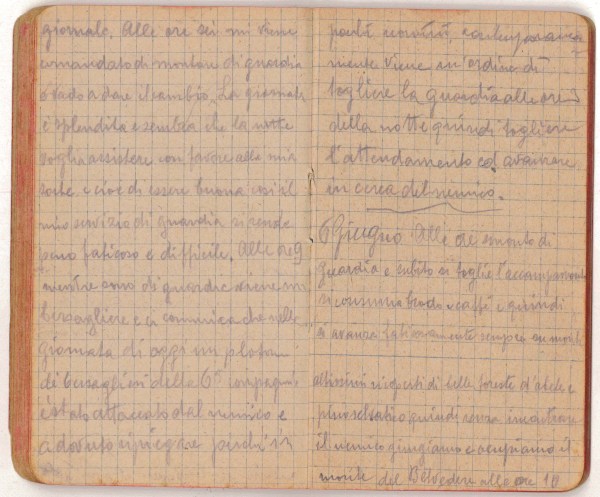 giornalo. Alle ore sei mi viene
comandato di montare di guardia
e vado a dare il cambio. La giornata
è splendita e sembra che la notte
voglia assistere con favore alla mia
sorte e cioè di essere buona così il
mio servizio di guardia si rende
meno faticoso e difficile. Alle ore 9
mentre sono di guardia viene un
bersagliere e ci comunica che nella
giornata di oggi un plotone
di bersaglieri della 6ª compagnia
è stato attaccato dal nemico e
a dovuto ripiegare perchè in
pochi uomini, contemporanea
mente viene un'ordine di
togliere la guardia alle ore 3
della notte quindi togliere
l'attendamento ed avanzare
in cerca del nemico.
6 Giugno Alle ore smonto di
guardia e subito si toglie l'accampamento
si consuma brodo e caffè e quindi
si avanza faticosamente sempre su monti
altissimi ricoperti di belle foreste d'abete e
pino selvatico, quindi senza incontrare
il nemico giungiamo e occupiamo il
monte del Belvedere alle ore 10